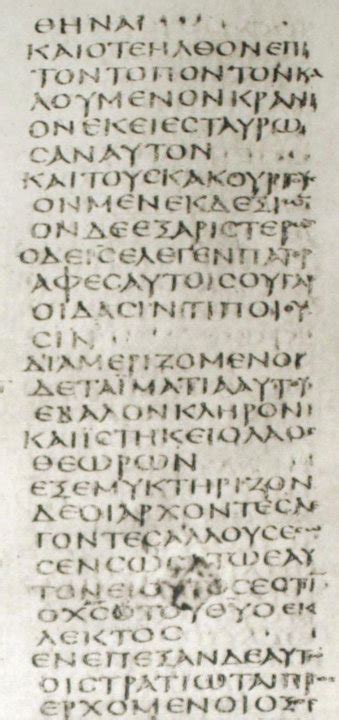 ΘΗΝΑΙ
ΚΑΙΟΤΕΗΛΘΟΝΕΠΙ
ΤΟΝΤΟΠΟΝΤΟΝΚΑ
ΛΟΥΜΕΝΟΝΚΡΑΝΙ
ΟΝΕΚΕΙΕϹΤΑΥΡΩ
ϹΑΝΑΥΤΟΝ
ΚΑΙΤΟΥϹΚΑΚΟΥΡΓΥ
ΟΝΜΕΝΕΚΔΕΞΙΩ
ΟΝΔΕΕΞΑΡΙϹΤΕΡΩ
ΟΔΕΙϹΕΛΕΓΕΝΠΑΤΕΡ
ΑΦΕϹΑΥΤΟΙϹΟΥΓΑΡ
ΟΙΔΑϹΙΝΤΙΠΟΙΟΥ
ϹΙΝ
ΔΙΑΜΕΡΙΖΟΜΕΝΟΙ
ΔΕΤΑΙΜΑΤΙΑΑΥΤΟΥ
ΕΒΑΛΟΝΚΛΗΡΟΝ
ΚΑΙΙϹΤΗΚΕΙΟΛΑΟϹ
ΘΕΩΡΩΝ
ΕΞΕΜΥΚΤΗΡΙΖΟΝ
ΔΕΟΙΑΡΧΟΝΤΕϹΛΕ
ΓΟΝΤΕϹΑΛΛΟΥϹΕϹΩ
ϹΕΝϹΩϹΑΤΩΕΑΥ
ΤΟΝΕΙΟΥΙΟϹΕϹΤΙ
ΟΧϹΟΤΟΥΘΥΟΕΚ
ΛΕΚΤΟϹ
ΕΝΕΠΕΞΑΝΔΕΑΥΤΩ
ΟΙϹΤΡΑΤΙΩΤΑΙΠΡ
ΕΡΧΟΜΕΝΟΙΟΞ